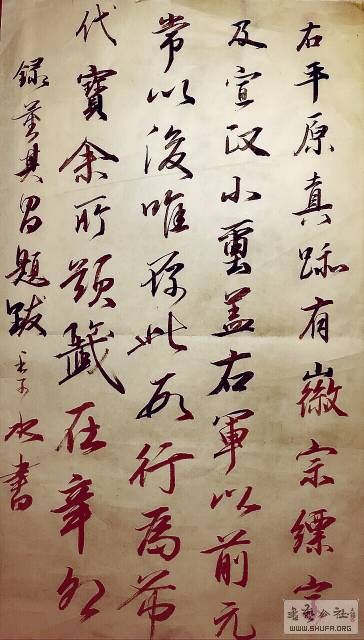 右平原真跡有徽宗縹字
及宣政小璽蓋右軍以前元
常以後唯存此數行為希
代寶余所題籤在辛卯
錄董其昌題跋 水書
WWW.SHUFA.ORG